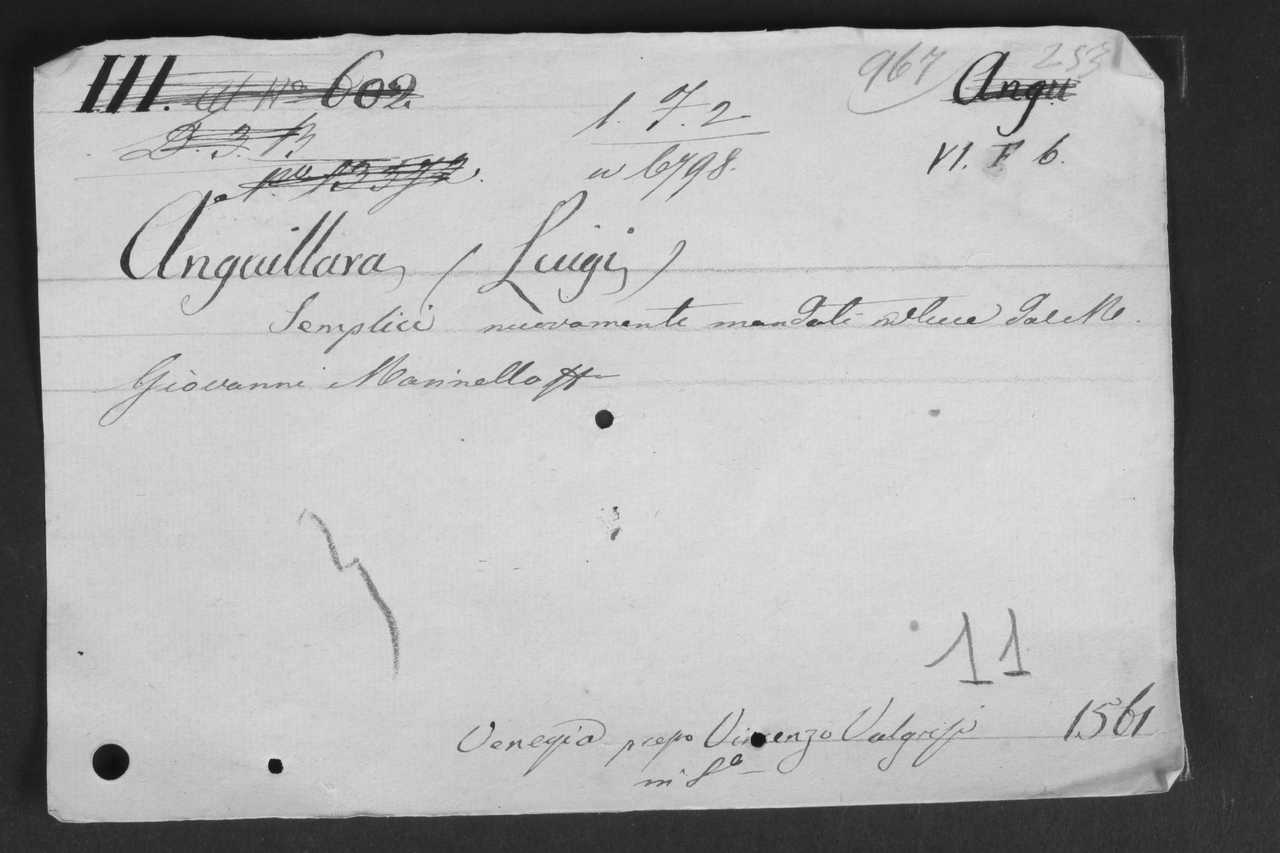 III. 602
967
253
Angu
D. 3. 13
1. 7. 2
n 6798.
VI. F 6.
nº 13572.
Anguillara, (Luigi,)
Semplici nuovamente mandati in luce da M.
Giovanni Marinello
11
Venegia presso Vincenzo Valgrisi 1561
in 8º